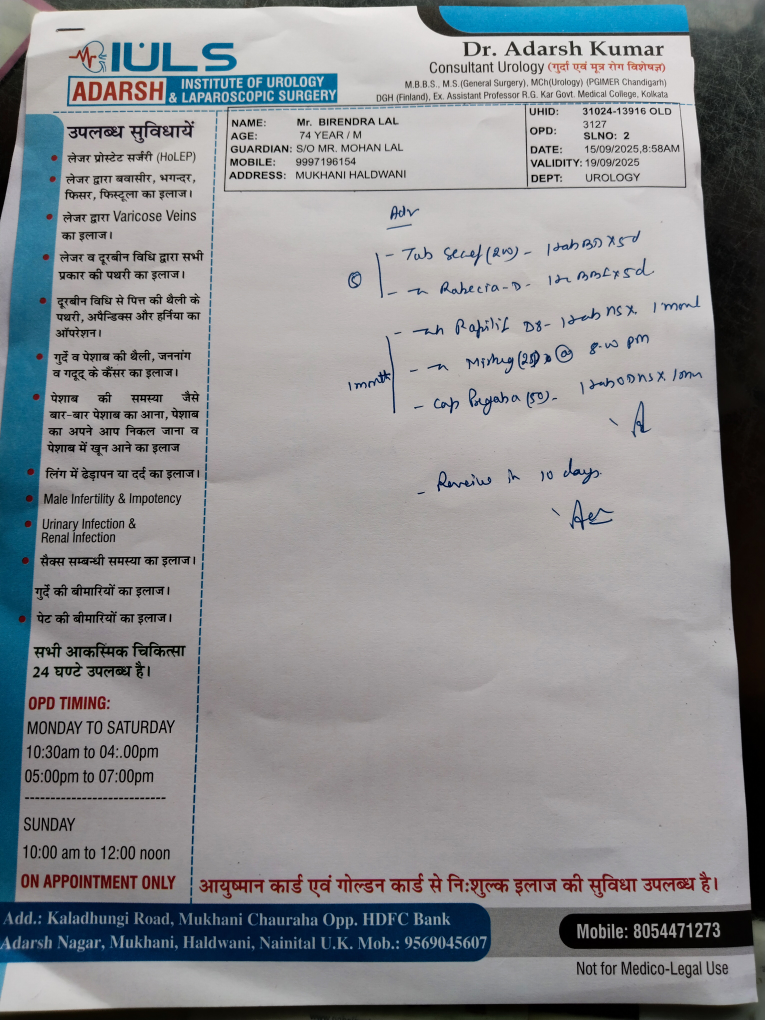 IULS
ADARSH INSTITUTE OF UROLOGY
& LAPAROSCOPIC SURGERY
Dr. Adarsh Kumar
Consultant Urology (गुर्दा एवं मूत्र रोग विशेषज्ञ)
M.B.B.S., M.S.(General Surgery), MCh(Urology) (PGIMER Chandigarh)
DGH (Finland), Ex. Assistant Professor R.G. Kar Govt. Medical College, Kolkata
NAME: Mr. BIRENDRA LAL
AGE: 74 YEAR / M
GUARDIAN: S/O MR. MOHAN LAL
MOBILE: 9997196154
ADDRESS: MUKHANI HALDWANI
UHID: 31024-13916 OLD
OPD: 3127
SLNO: 2
DATE: 15/09/2025,8:58AM
VALIDITY: 19/09/2025
DEPT: UROLOGY
उपलब्ध सुविधायें
लेजर प्रोस्टेट सर्जरी (HoLEP)
लेजर द्वारा बवासीर, भगन्दर,
फिसर, फिस्टूला का इलाज।
लेजर द्वारा Varicose Veins
का इलाज।
लेजर व दूरबीन विधि द्वारा सभी
प्रकार की पथरी का इलाज।
दूरबीन विधि से पित्त की थैली के
पथरी, अपैन्डिक्स और हर्निया का
ऑपरेशन।
गुर्दे व पेशाब की थैली, जननांग
व गदूद के कैंसर का इलाज।
पेशाब की समस्या जैसे
बार-बार पेशाब का आना, पेशाब
का अपने आप निकल जाना व
पेशाब में खून आने का इलाज
लिंग में ढेड़ापन या दर्द का इलाज।
Male Infertility & Impotency
Urinary Infection &
Renal Infection
सैक्स सम्बन्धी समस्या का इलाज।
गुर्दे की बीमारियों का इलाज।
पेट की बीमारियों का इलाज।
सभी आकस्मिक चिकित्सा
24 घण्टे उपलब्ध है।
OPD TIMING:
MONDAY TO SATURDAY
10:30am to 04:.00pm
05:00pm to 07:00pm
SUNDAY
10:00 am to 12:00 noon
ON APPOINTMENT ONLY
Adv
- Tab (200) - 1 tab BD x 5d
- Rabecia-D - BBF x 5d
- D8 - 1 tab HS x 1 month
- (25) @ 8.00 pm
1 month
- Cap (50) - 1 tab OD HS x
- Review in 10 days.
आयुष्मान कार्ड एवं गोल्डन कार्ड से नि:शुल्क इलाज की सुविधा उपलब्ध है।
Add.: Kaladhungi Road, Mukhani Chauraha Opp. HDFC Bank
Adarsh Nagar, Mukhani, Haldwani, Nainital U.K. Mob.: 9569045607
Mobile: 8054471273
Not for Medico-Legal Use